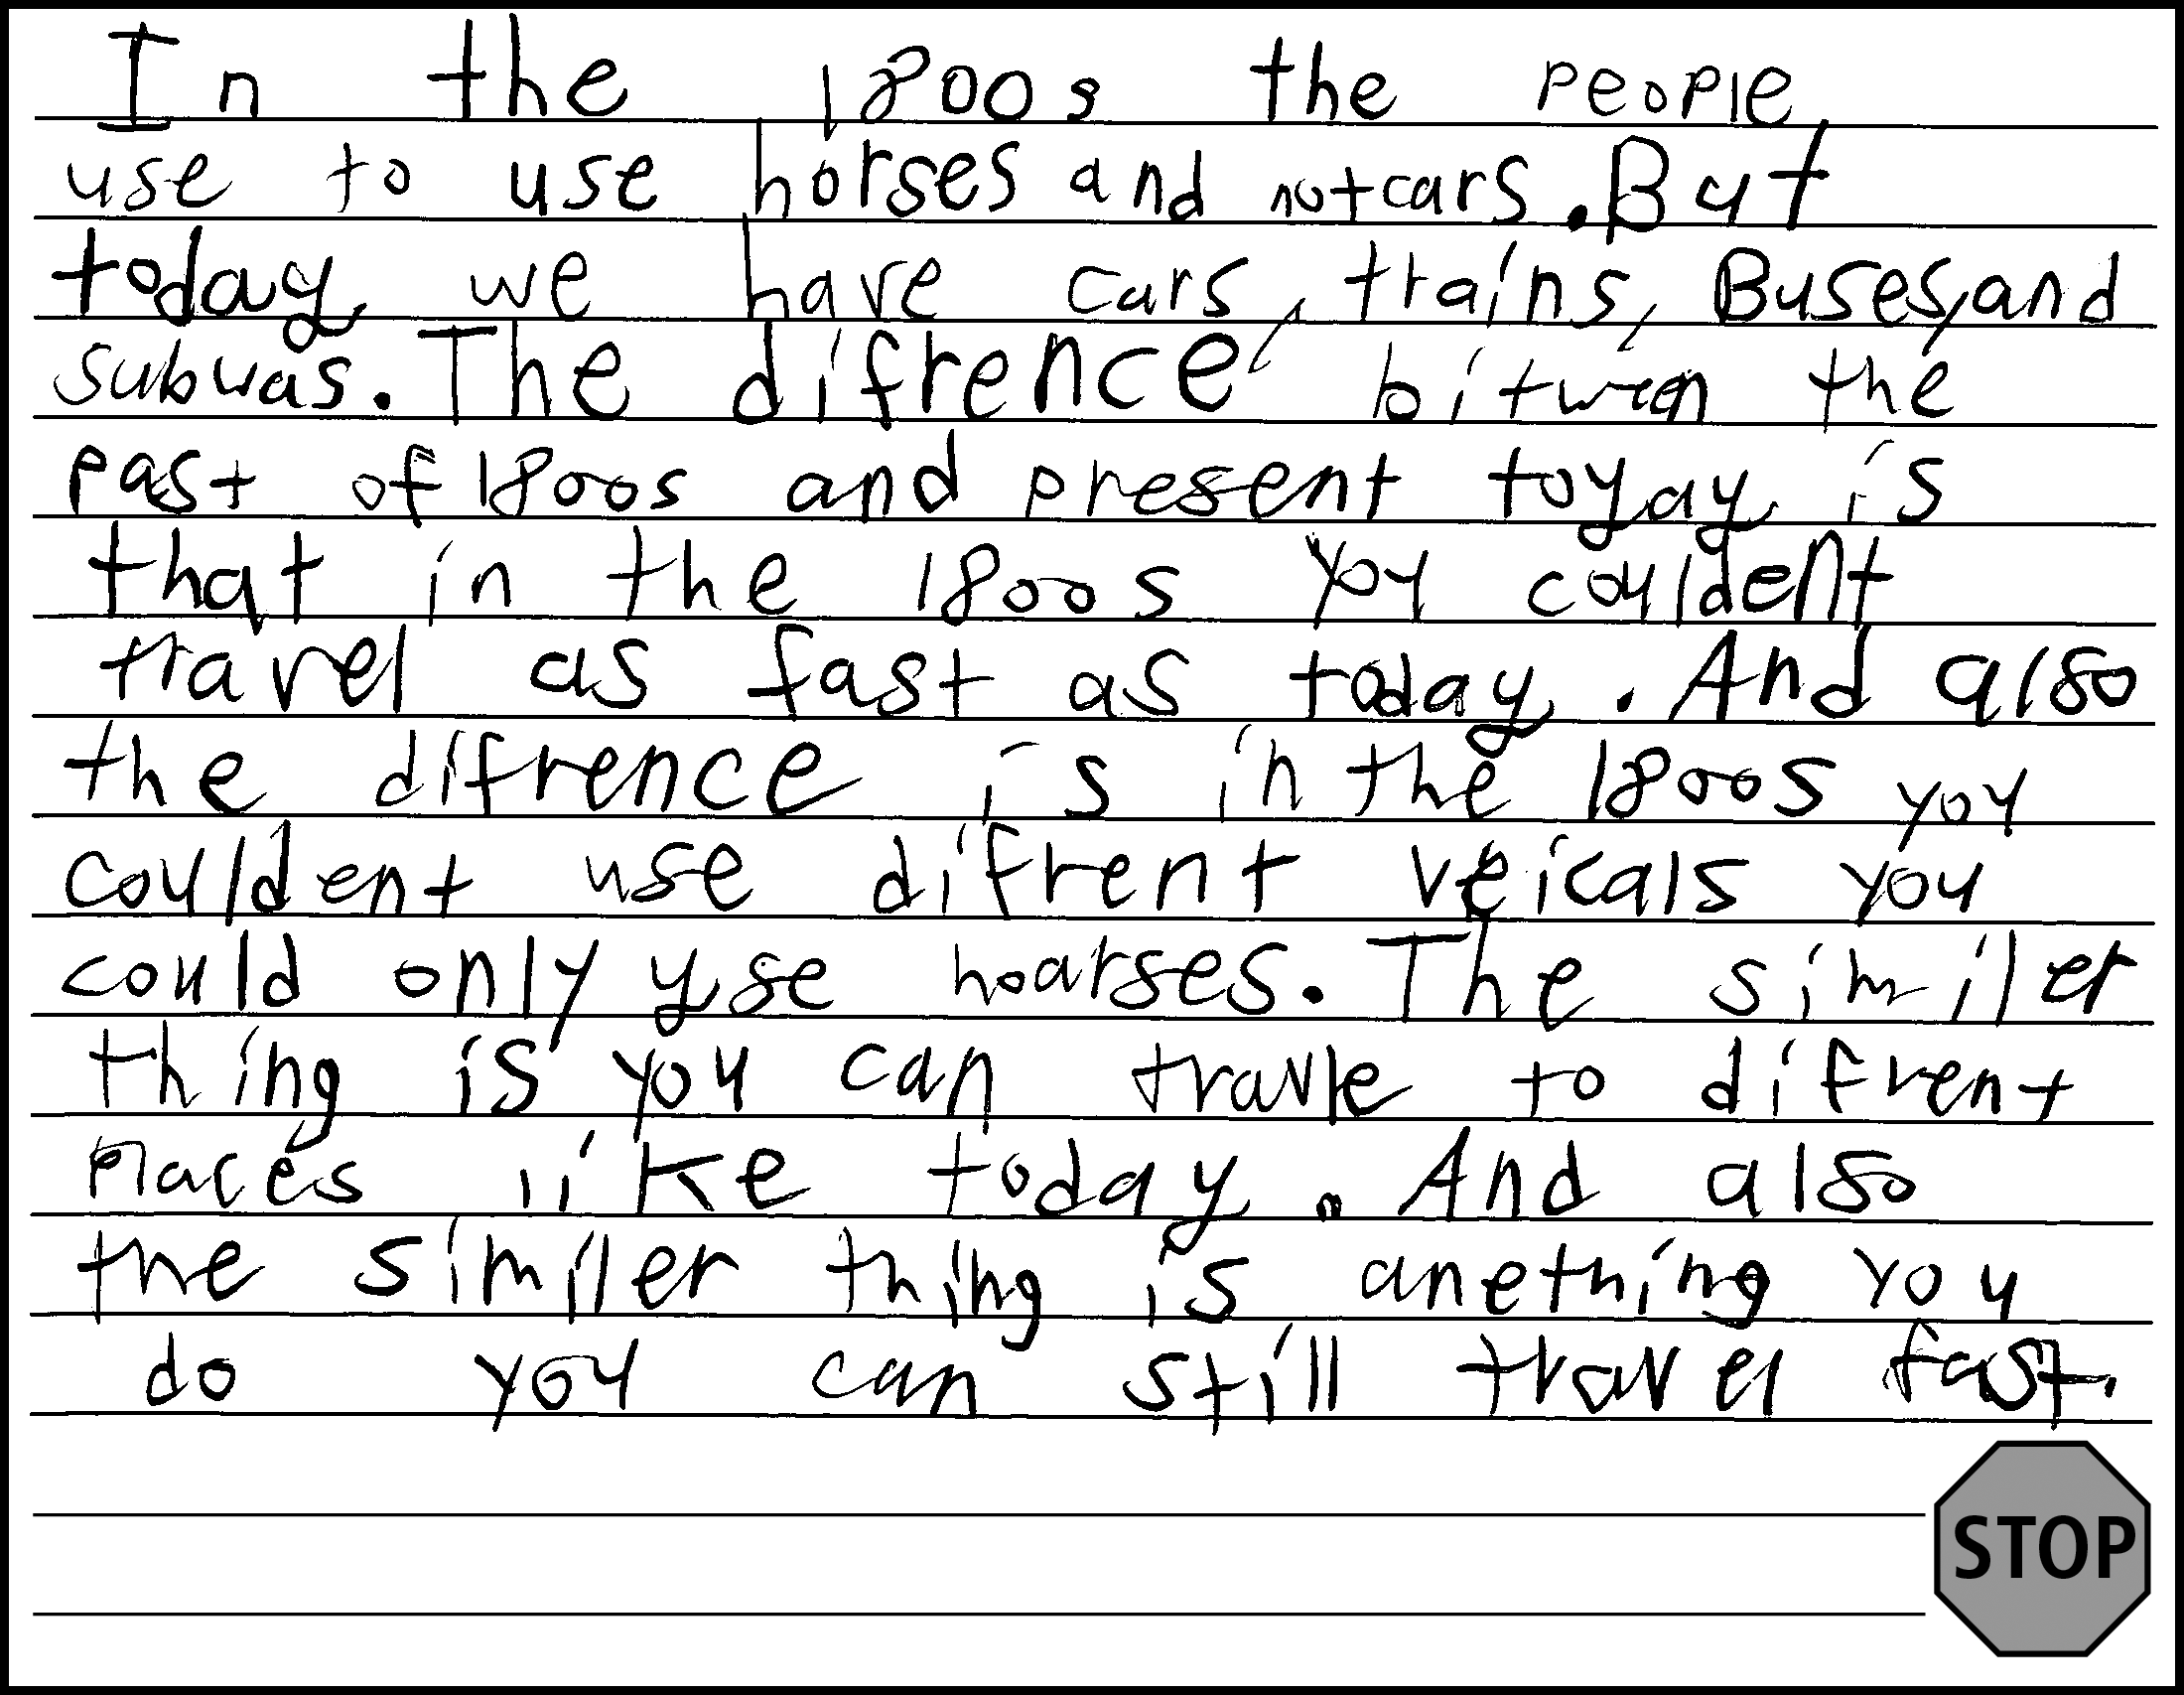 In the 1800s the people
use to use horses and not cars. But
today we have cars, trains, Buses, and
subwas. The difrence bitwien the
past of 1800s and present toyay is
that in the 1800s you couldent
travel as fast as today. And also
the difrence is in the 1800s you
couldent use difrent veicals you
could only use hoarses. The similer
thing is you can travle to difrent
places like today. And also
the similer thing is anething you
do you can still travel fast.
STOP